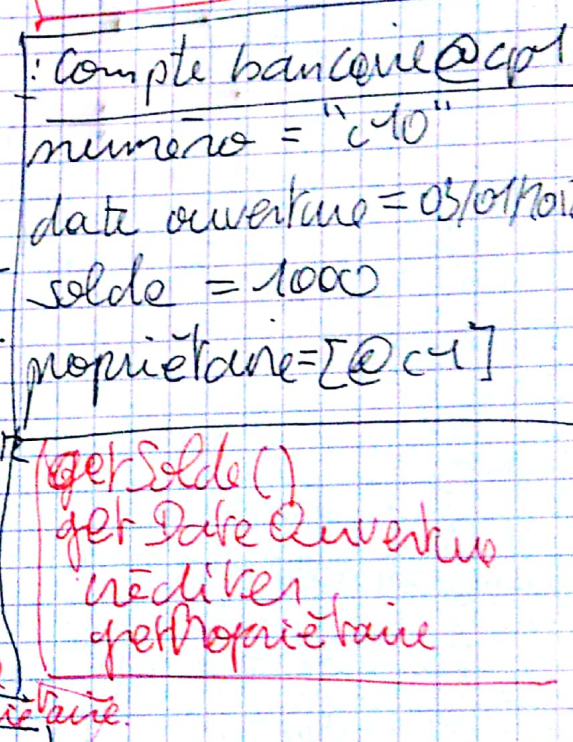 : Compte bancaire@cp1
numéro = "c10"
date ouverture = 03/01/201
solde = 1000
propriétaire=[@c1]
getSolde()
getDate Ouverture
créditer
getPropriétaire
iétaire.